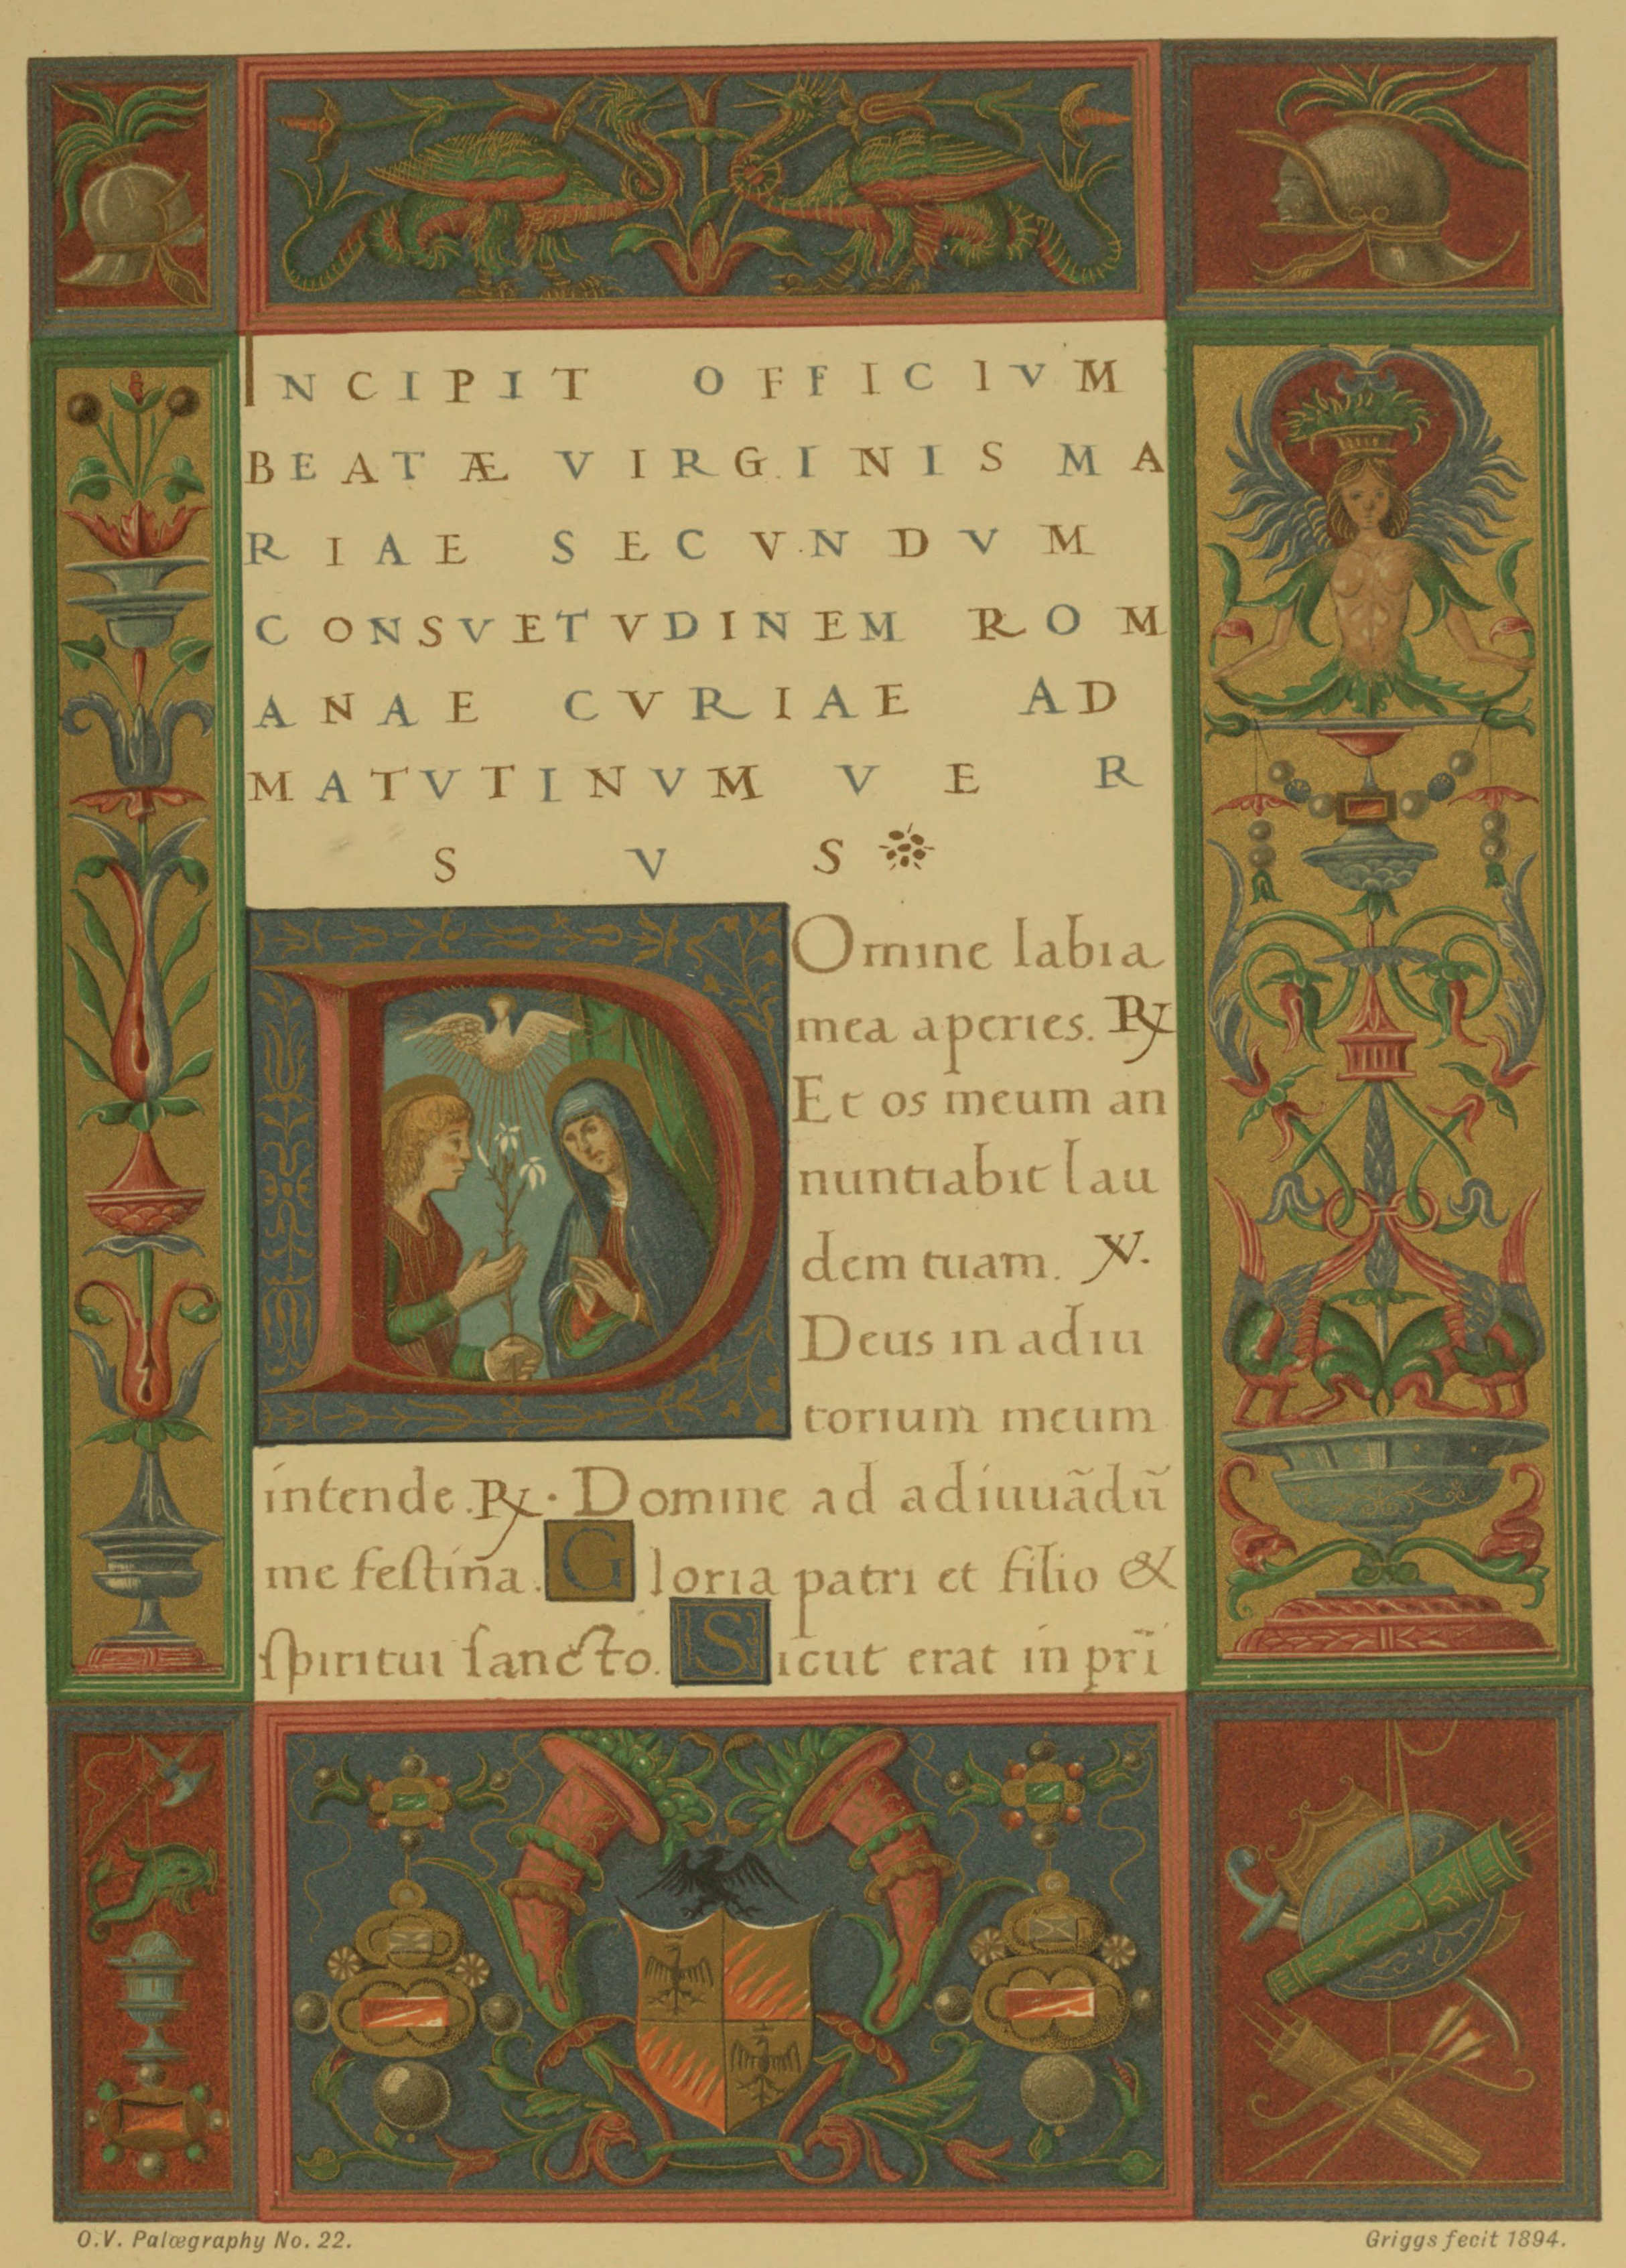 INCIPIT OFFICIVM
BEATÆ VIRGINIS MA
RIAE SECVNDVM
CONSVETVDINEM ROM
ANAE CVRIAE AD
MATVTINVM VER
SVS
Domine labia
mea aperies. ℟
Et os meum an
nuntiabit lau
dem tuam. ℣.
Deus in adiu
torium meum
intende. ℟. Domine ad adiuuãdũ
me feſtina. Gloria patri et filio &
ſpiritui ſancto. Sicut erat in pri
O.V. Palæography No. 22.
Griggs fecit 1894.